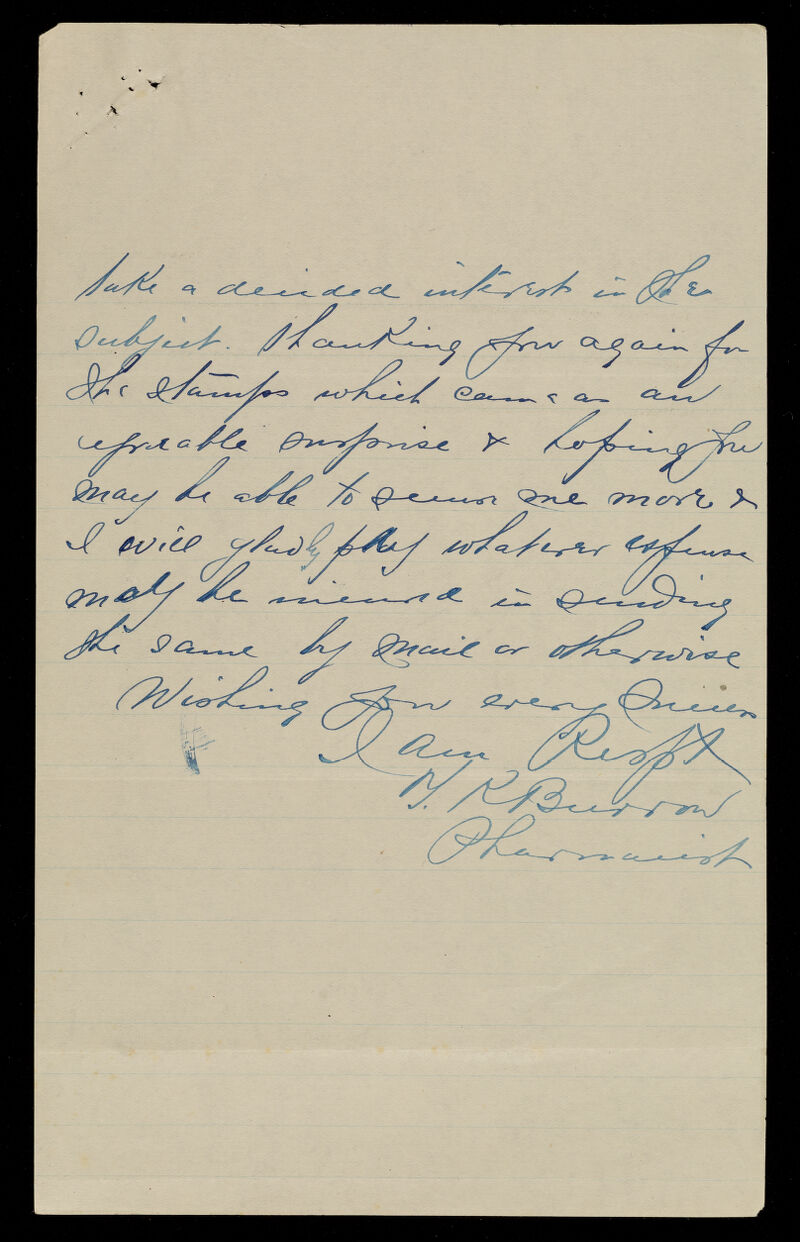 take a decided interest in the
subject. Thanking you again for
the stamps which came as an
agreable surprise & hoping you
may be able to secure me more &
I will gladly pay whatever expense
may be incured in sending
the same by mail or otherwise
Wishing you every Success
I am Respt
K Burrow
Pharmacist